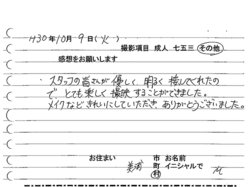 H30年10月9日(火)
撮影項目 成人 七五三 その他
感想をお願いします
スタッフの皆さんが優しく、明るく接してくれたの
で、とても楽しく撮影することができました。
メイクなどきれいにしていただき ありがとうございました。
お住まい 美浦 市町村 お名前 イニシャルで